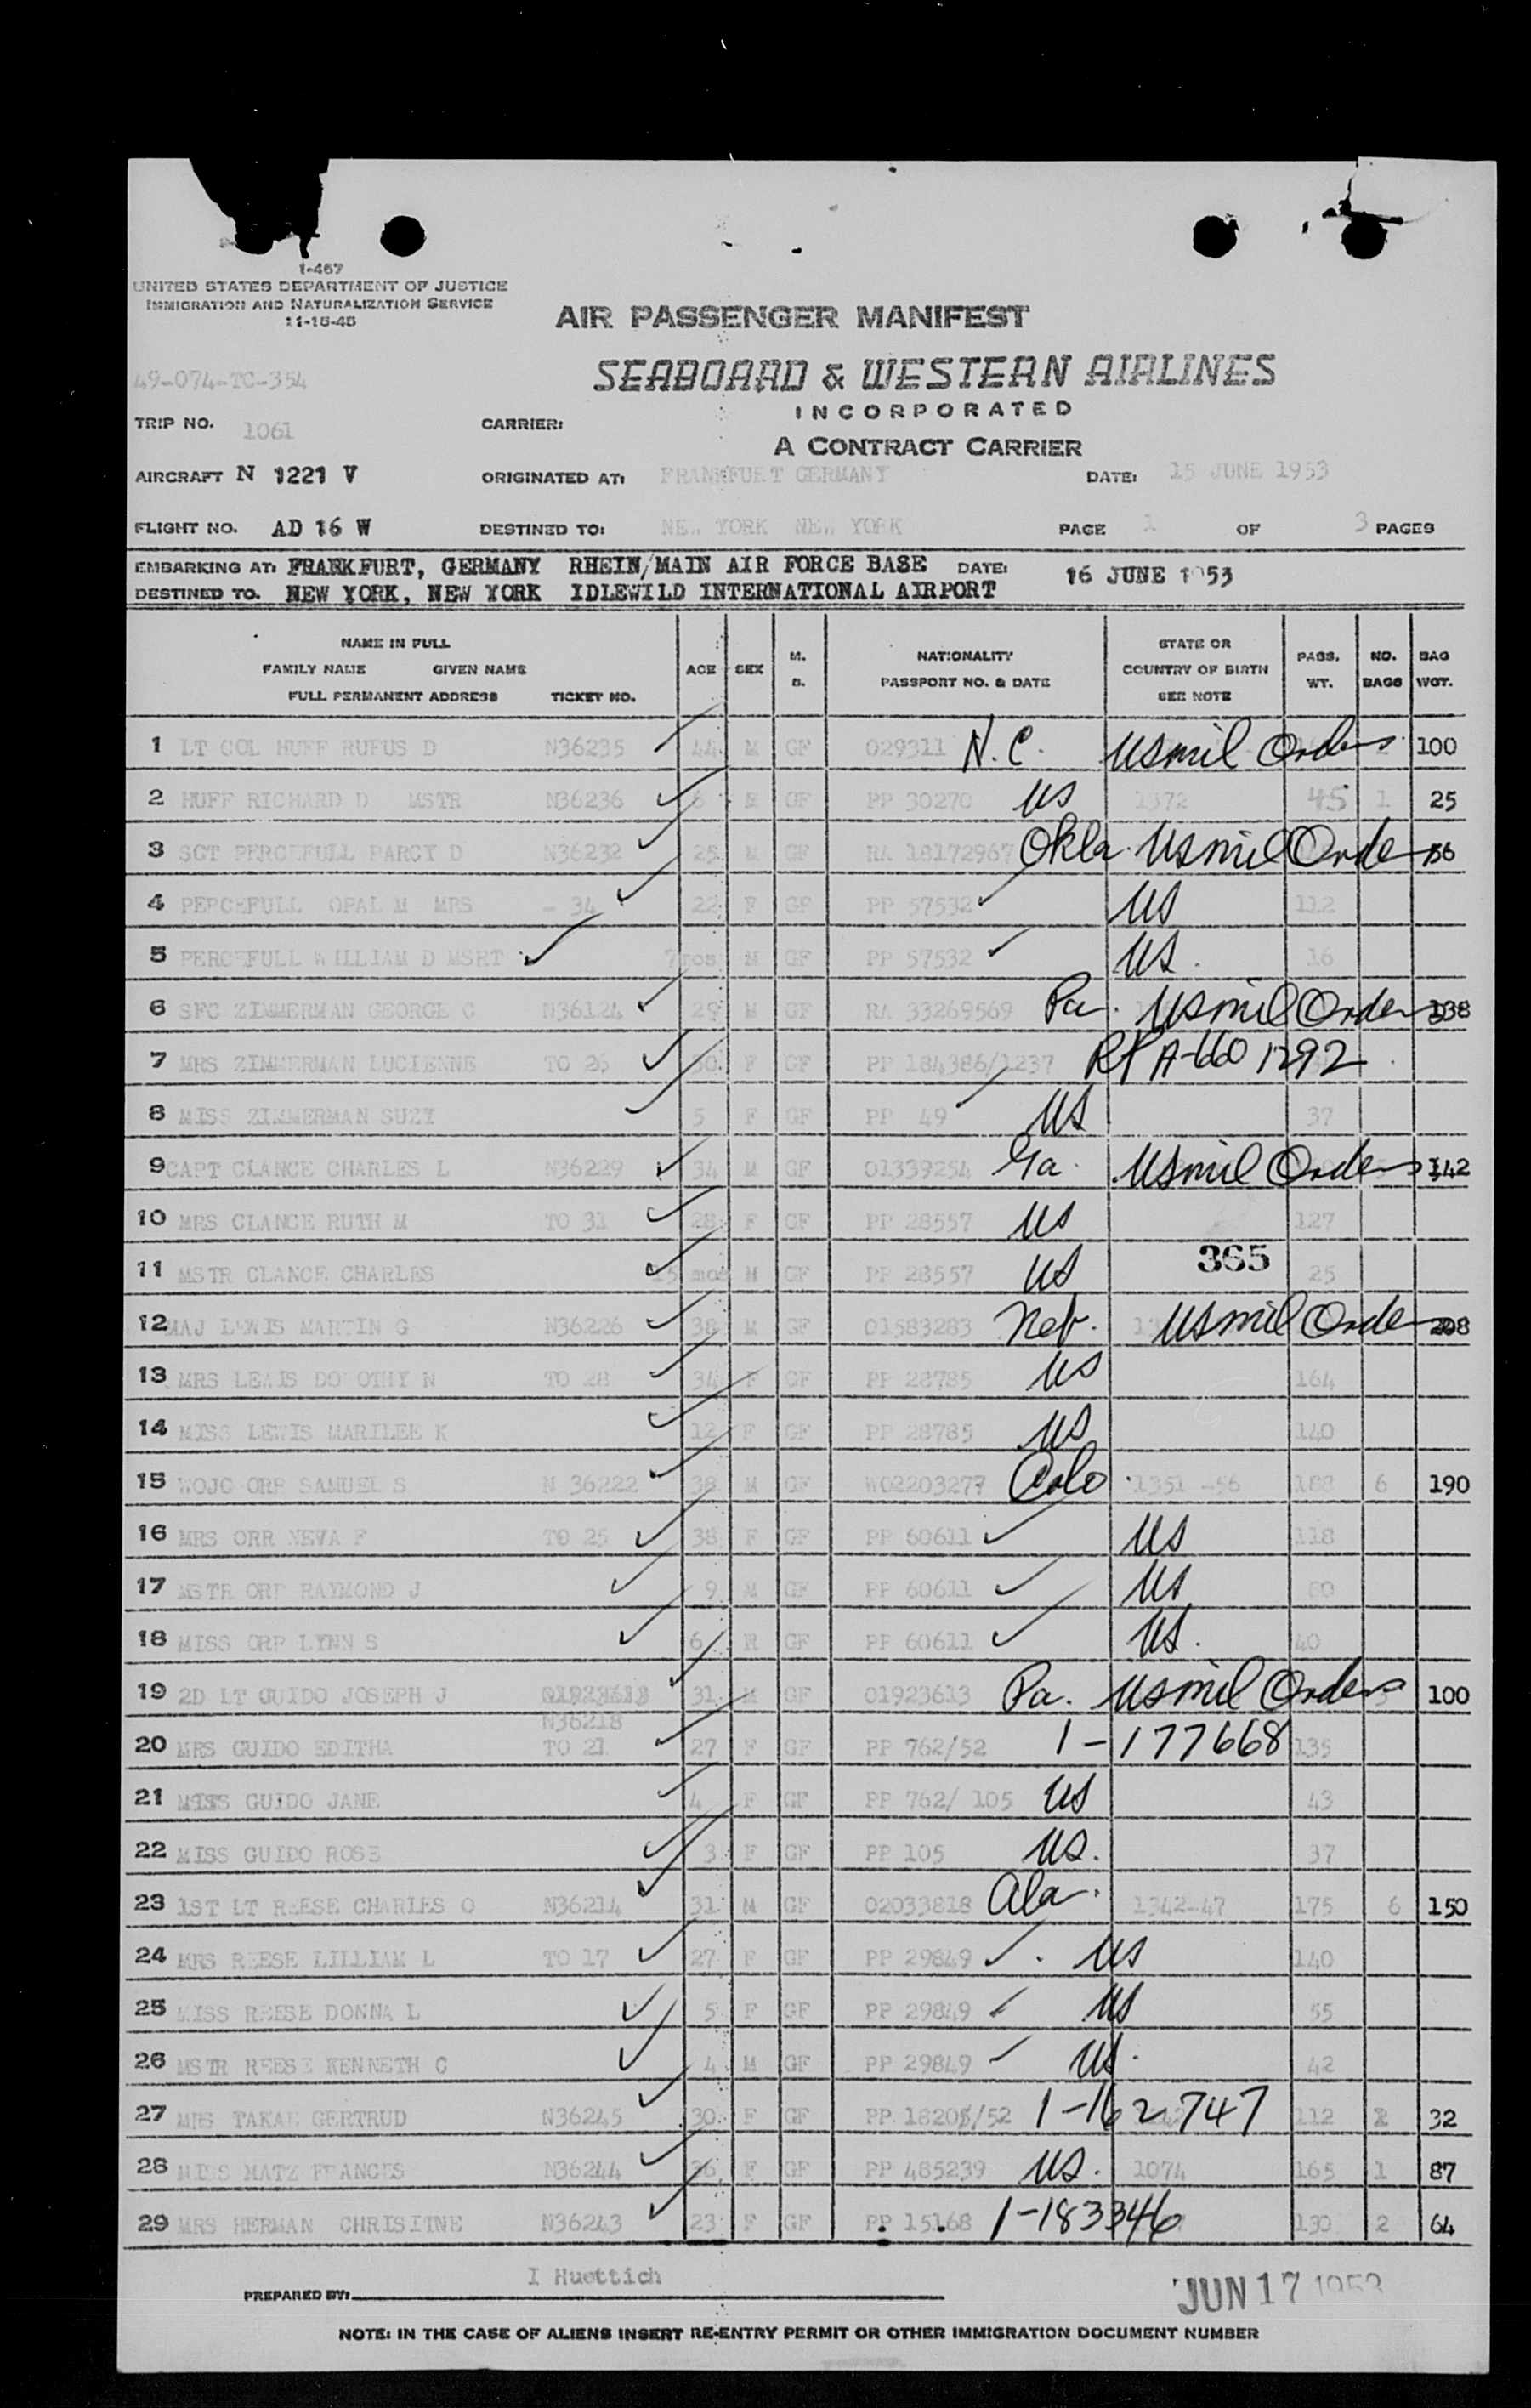 I-467
UNITED STATES DEPARTMENT OF JUSTICE
IMMIGRATION AND NATURALIZATION SERVICE
11-15-45
AIR PASSENGER MANIFEST
49-074-TC-354
SEABOARD & WESTERN AIRLINES
INCORPORATED
TRIP NO. 1061 CARRIER:
A CONTRACT CARRIER
AIRCRAFT N 1221 V ORIGINATED AT: FRANKFURT GERMANY DATE: 15 JUNE 1953
FLIGHT NO. AD 16 W DESTINED TO: NEW YORK NEW YORK PAGE 1 OF 3 PAGES
EMBARKING AT: FRANKFURT, GERMANY RHEIN/MAIN AIR FORCE BASE DATE: 16 JUNE 1953
DESTINED TO. NEW YORK, NEW YORK IDLEWILD INTERNATIONAL AIRPORT
NAME IN FULL
FAMILY NAME GIVEN NAME
FULL PERMANENT ADDRESS TICKET NO.
AGE SEX M. S. NATIONALITY PASSPORT NO. & DATE STATE OR COUNTRY OF BIRTH SEE NOTE PASS. WT. NO. BAGS BAG WGT.
1 LT COL HUFF RUFUS D N36235 44 M GF 029311 N.C. US mil Orders 100
2 HUFF RICHARD D MSTR N36236 6 M GF PP 30270 US 1372 45 1 25
3 SGT PERCEFULL PARCY D N36232 25 M GF RA 18172967 Okla. US mil Orde 156
4 PERCEFULL OPAL M MRS - 34 22 F GF PP 57532 US 112
5 PERCEFULL WILLIAM D MSRT 7 mos M GF PP 57532 US. 16
6 SFC ZIMMERMAN GEORGE C N36124 29 M GF RA 33269569 Pa. US mil Orders 138
7 MRS ZIMMERMAN LUCIENNE TO 26 30 F GF PP 184386/1237 RP A-660 1292
8 MISS ZIMMERMAN SUZY 5 F GF PP 49 US 37
9 CAPT CLANCE CHARLES L N36229 34 M GF 01339254 Ga. US mil Orders 142
10 MRS CLANCE RUTH M TO 31 28 F GF PP 28557 US 127
11 MSTR CLANCE CHARLES 15 mos M GF PP 28557 US 365 25
12 MAJ LEWIS MARTIN G N36226 38 M GF 01583283 Neb. US mil Orde 208
13 MRS LEWIS DOROTHY N TO 28 34 F GF PP 28785 US 164
14 MISS LEWIS MARILEE K 12 F GF PP 28785 US 140
15 WOJG ORR SAMUEL S N 36222 38 M GF W02203277 Colo. 1351 -56 188 6 190
16 MRS ORR NEVA F TO 25 38 F GF PP 60611 US 118
17 MSTR ORR RAYMOND J 9 M GF PP 60611 US 80
18 MISS ORR LYNN S 6 GF PP 60611 US. 40
19 2D LT GUIDO JOSEPH J 31 M GF 01923613 Pa. US mil Orders 100
N36218
20 MRS GUIDO EDITHA TO 21 27 F GF PP 762/52 1-177668 135
21 MISS GUIDO JANE 4 F GF PP 762/ 105 US 43
22 MISS GUIDO ROSE 3 F GF PP 105 US. 37
23 1ST LT REESE CHARLES O N36214 31 M GF 02033818 Ala. 1342-47 175 6 150
24 MRS REESE LILLIAM L TO 17 27 F GF PP 29849 US 140
25 MISS REESE DONNA L 5 F GF PP 29849 US 55
26 MSTR REESE KENNETH C 4 M GF PP 29849 US. 42
27 MRS TAKAE GERTRUD N36245 30 F GF PP 18208/52 1-162747 112 32
28 MISS MATZ FRANCES N36244 36 F GF PP 485239 US. 1074 165 1 87
29 MRS HERMAN CHRISITNE N36243 23 F GF PP 15168 1-183346 130 2 64
I Huettich
PREPARED BY:
JUN 17 1953
NOTE: IN THE CASE OF ALIENS INSERT RE-ENTRY PERMIT OR OTHER IMMIGRATION DOCUMENT NUMBER